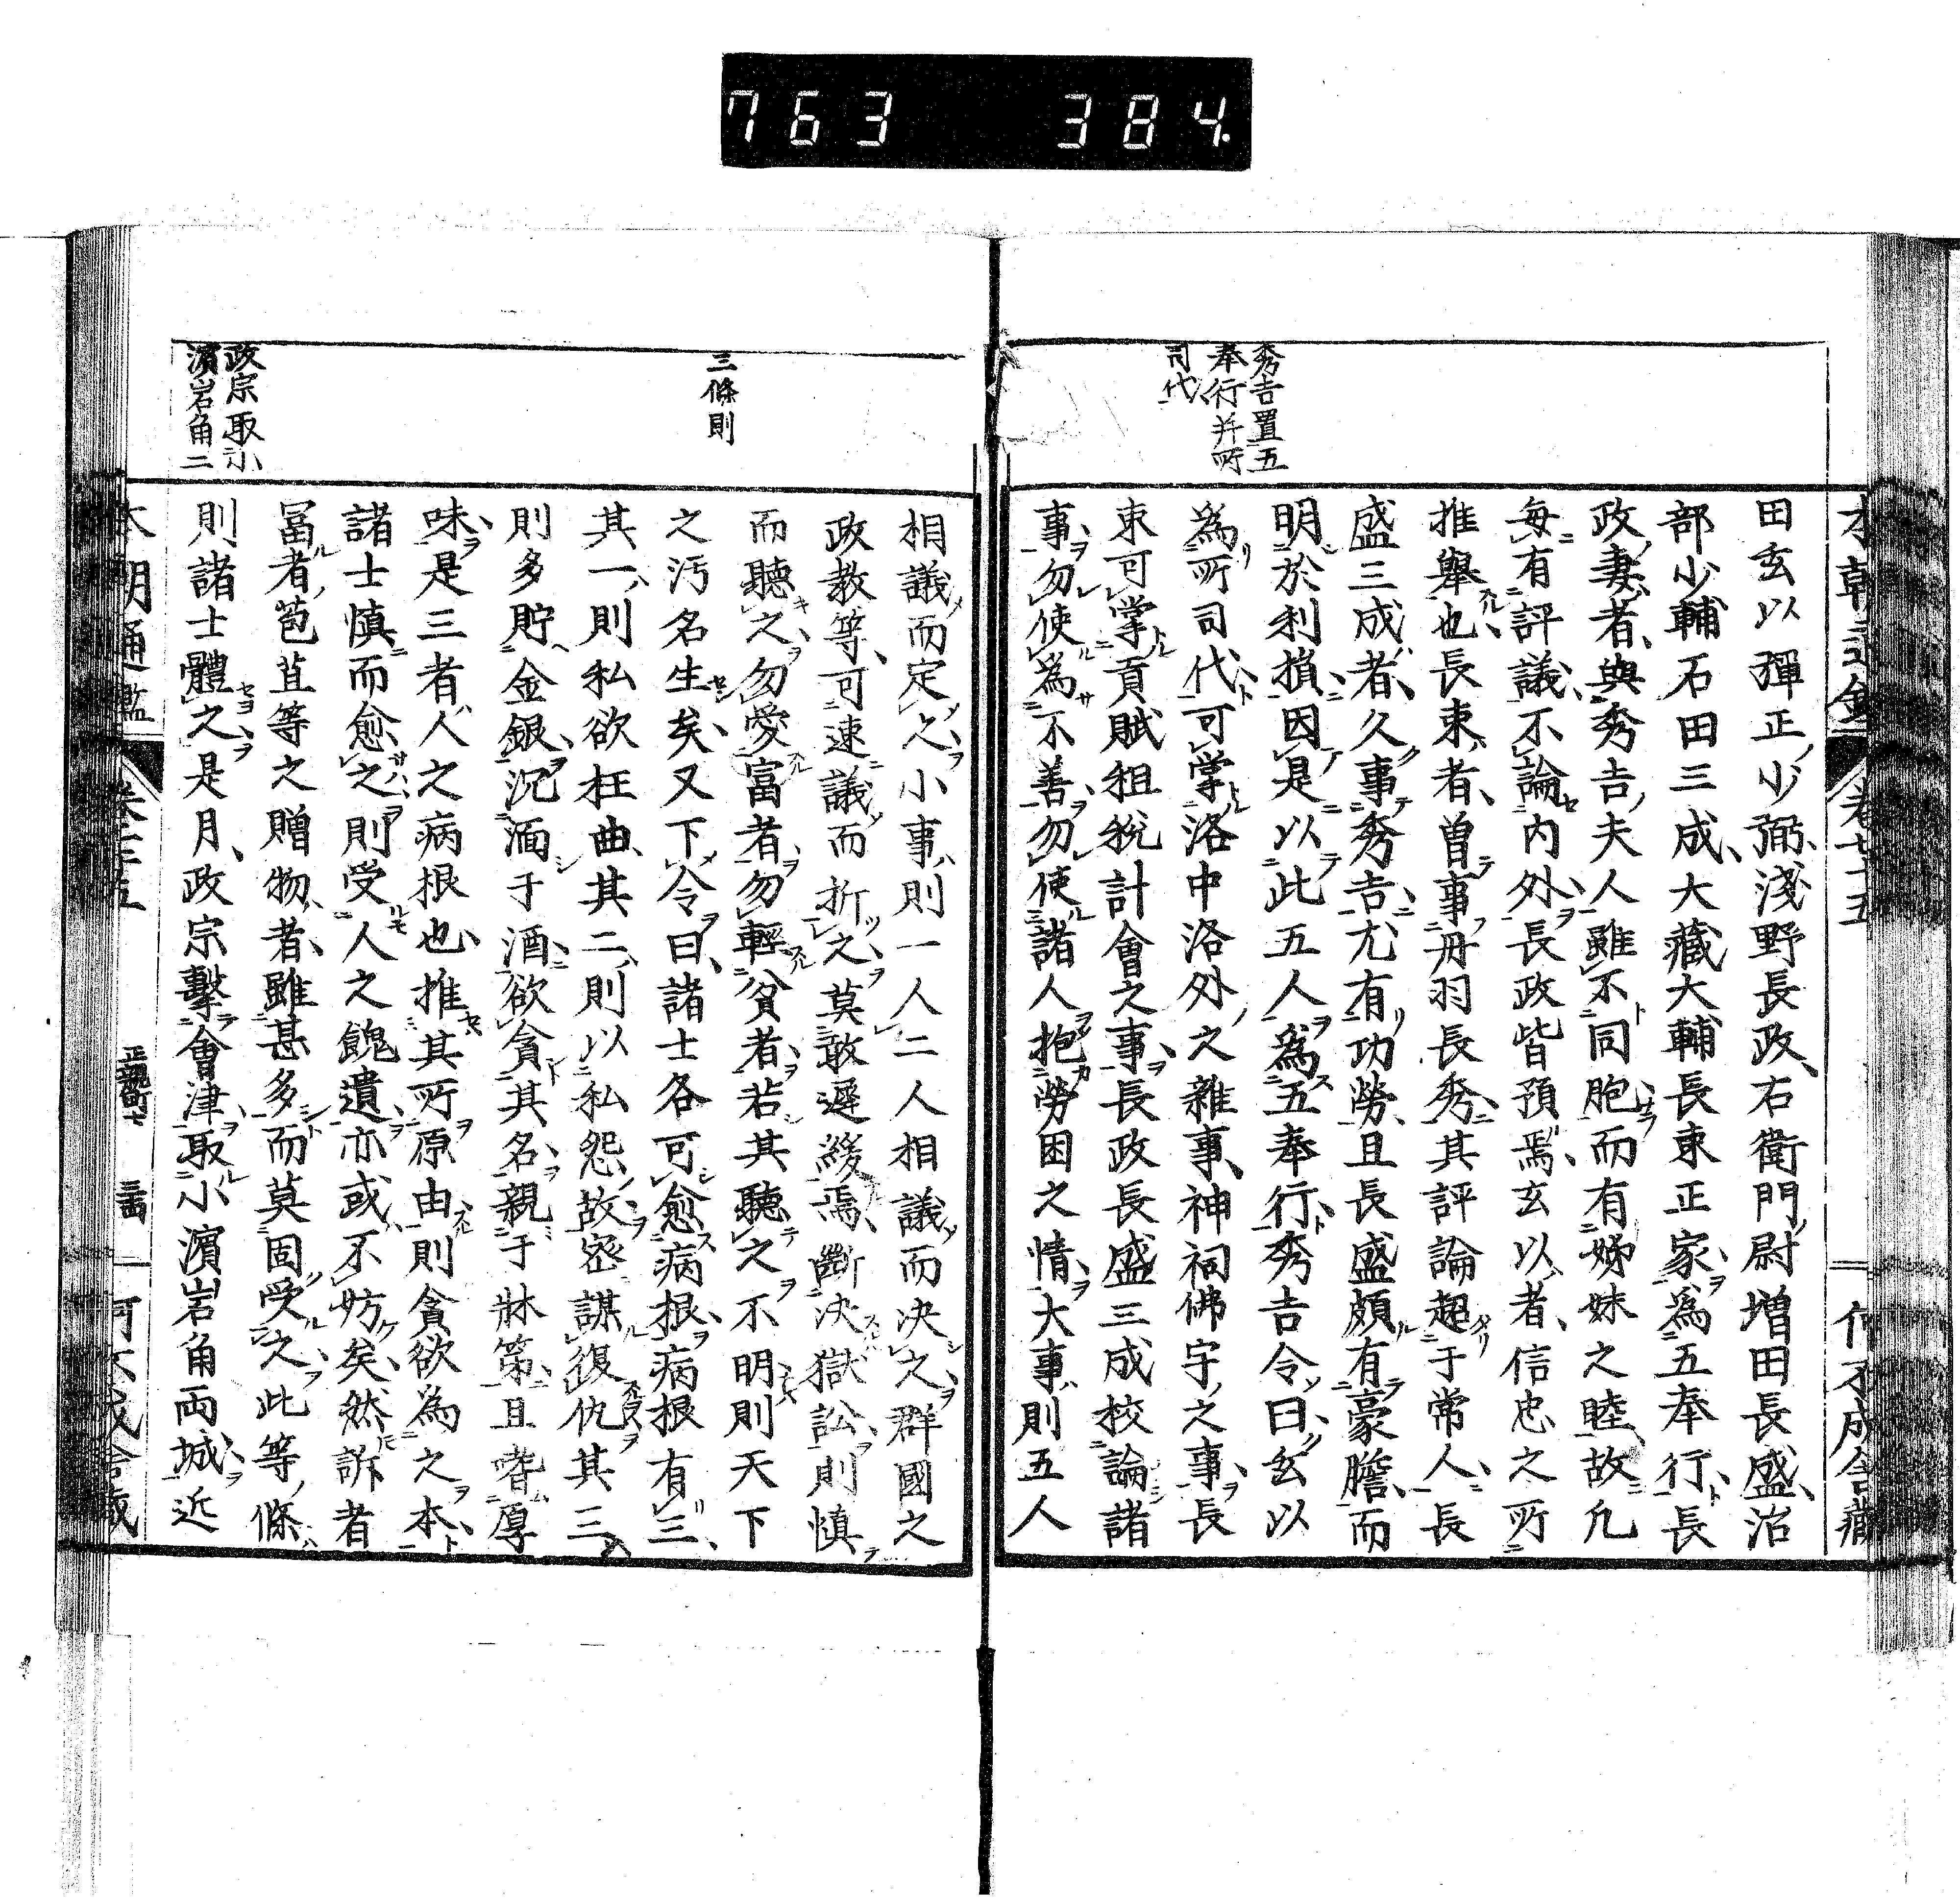 763 384.
本朝通鑑 卷七十五 何不成舍藏
秀吉置五
奉行并所
司代
田玄以彈正少弼淺野長政右衛門尉增田長盛治
部少輔石田三成大藏大輔長束正家為五奉行長
政妻者與秀吉夫人雖不同胞而有姊妹之睦故凡
每有評議不論內外長政皆預焉玄以者信忠之所
推舉也長束者曾事丹羽長秀其評論超于常人長
盛三成者久事秀吉尤有功勞且長盛頗有豪膽而
明於利損因是以此五人為五奉行秀吉令曰玄以
為所司代可掌洛中洛外之雜事神祠佛宇之事長
束可掌貢賦租稅計會之事長政長盛三成校論諸
事勿使為不善勿使諸人抱勞困之情大事則五人
三條則
政宗取小
濱岩角二
相議而定之小事則一人二人相議而決之群國之
政教等可速議而折之莫敢遲緩焉斷決獄訟則慎
而聽之勿愛富者勿輕貧者若其聽之不明則天下
之污名生矣又下令曰諸士各可愈病根病根有三
其一則私欲枉曲其二則以私怨故密謀復仇其三
則多貯金銀沉湎于酒欲貪其名親于牀笫且嗜厚
味是三者人之病根也推其所原由則貪欲為之本
諸士慎而愈之則受人之餽遺亦或不妨矣然訴者
富者苞苴等之贈物者雖甚多而莫固受之此等條
則諸士體之是月政宗擊會津取小濱岩角両城近